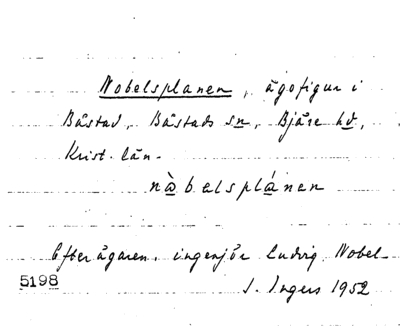 Nobelsplanen, ägofigur i
Båstad, Båstads sn, Bjäre hd,
Krist. län.
nàbelsplánen
Efter ägaren, ingenjör Ludvig Nobel
5198
I. Ingers 1952